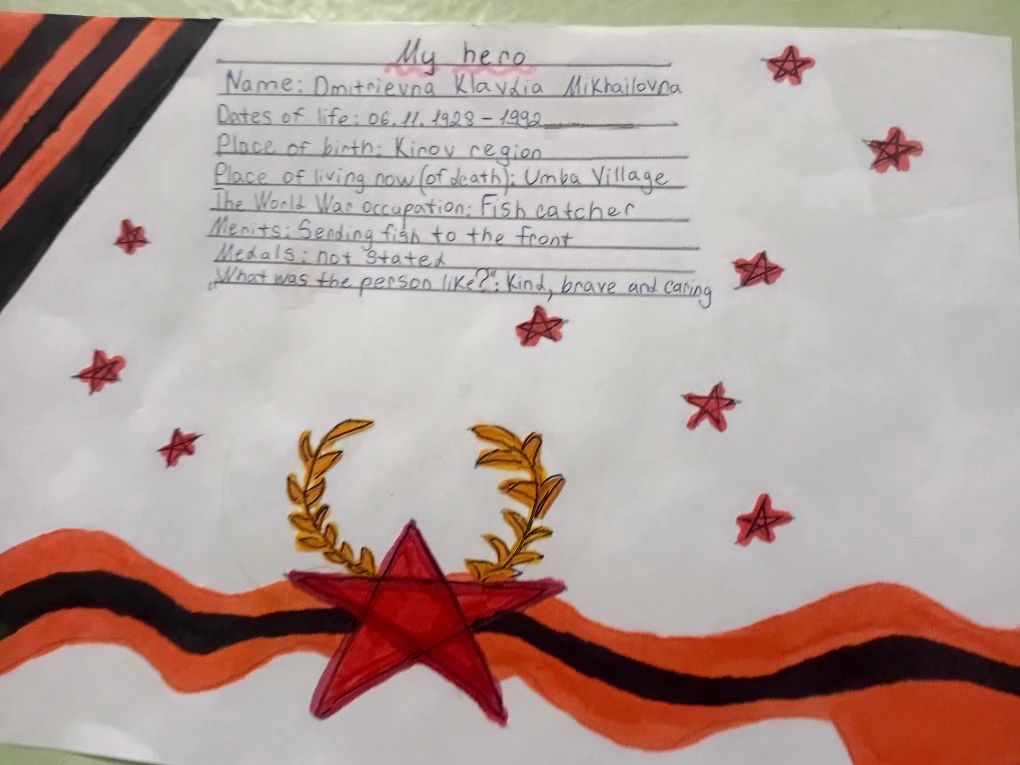 My hero
Name: Dmitrievna Klavdia Mikhailovna
Dates of life: 06.11.1928 - 1992
Place of birth: Kirov region
Place of living now (of death): Umba Village
The World War occupation: Fish catcher
Merits: Sending fish to the front
Medals: not stated
„What was the person like?": Kind, brave and caring